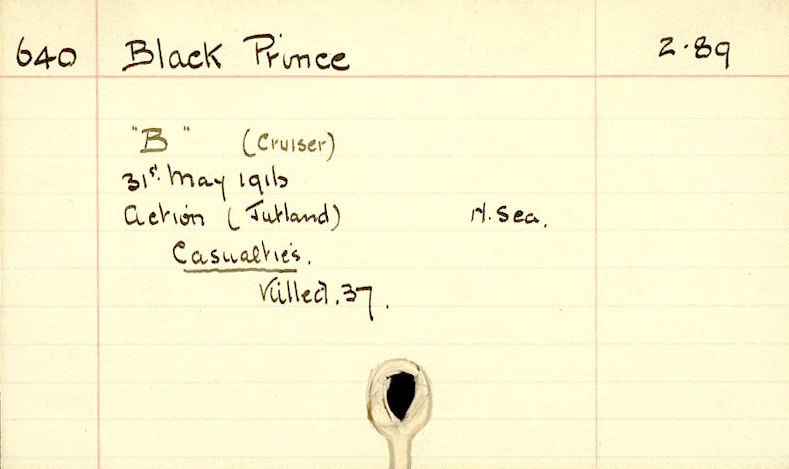 640 Black Prince 2.89
"B" (Cruiser)
31st. May 1916
Action (Jutland) N. Sea.
Casualties.
Killed. 37.